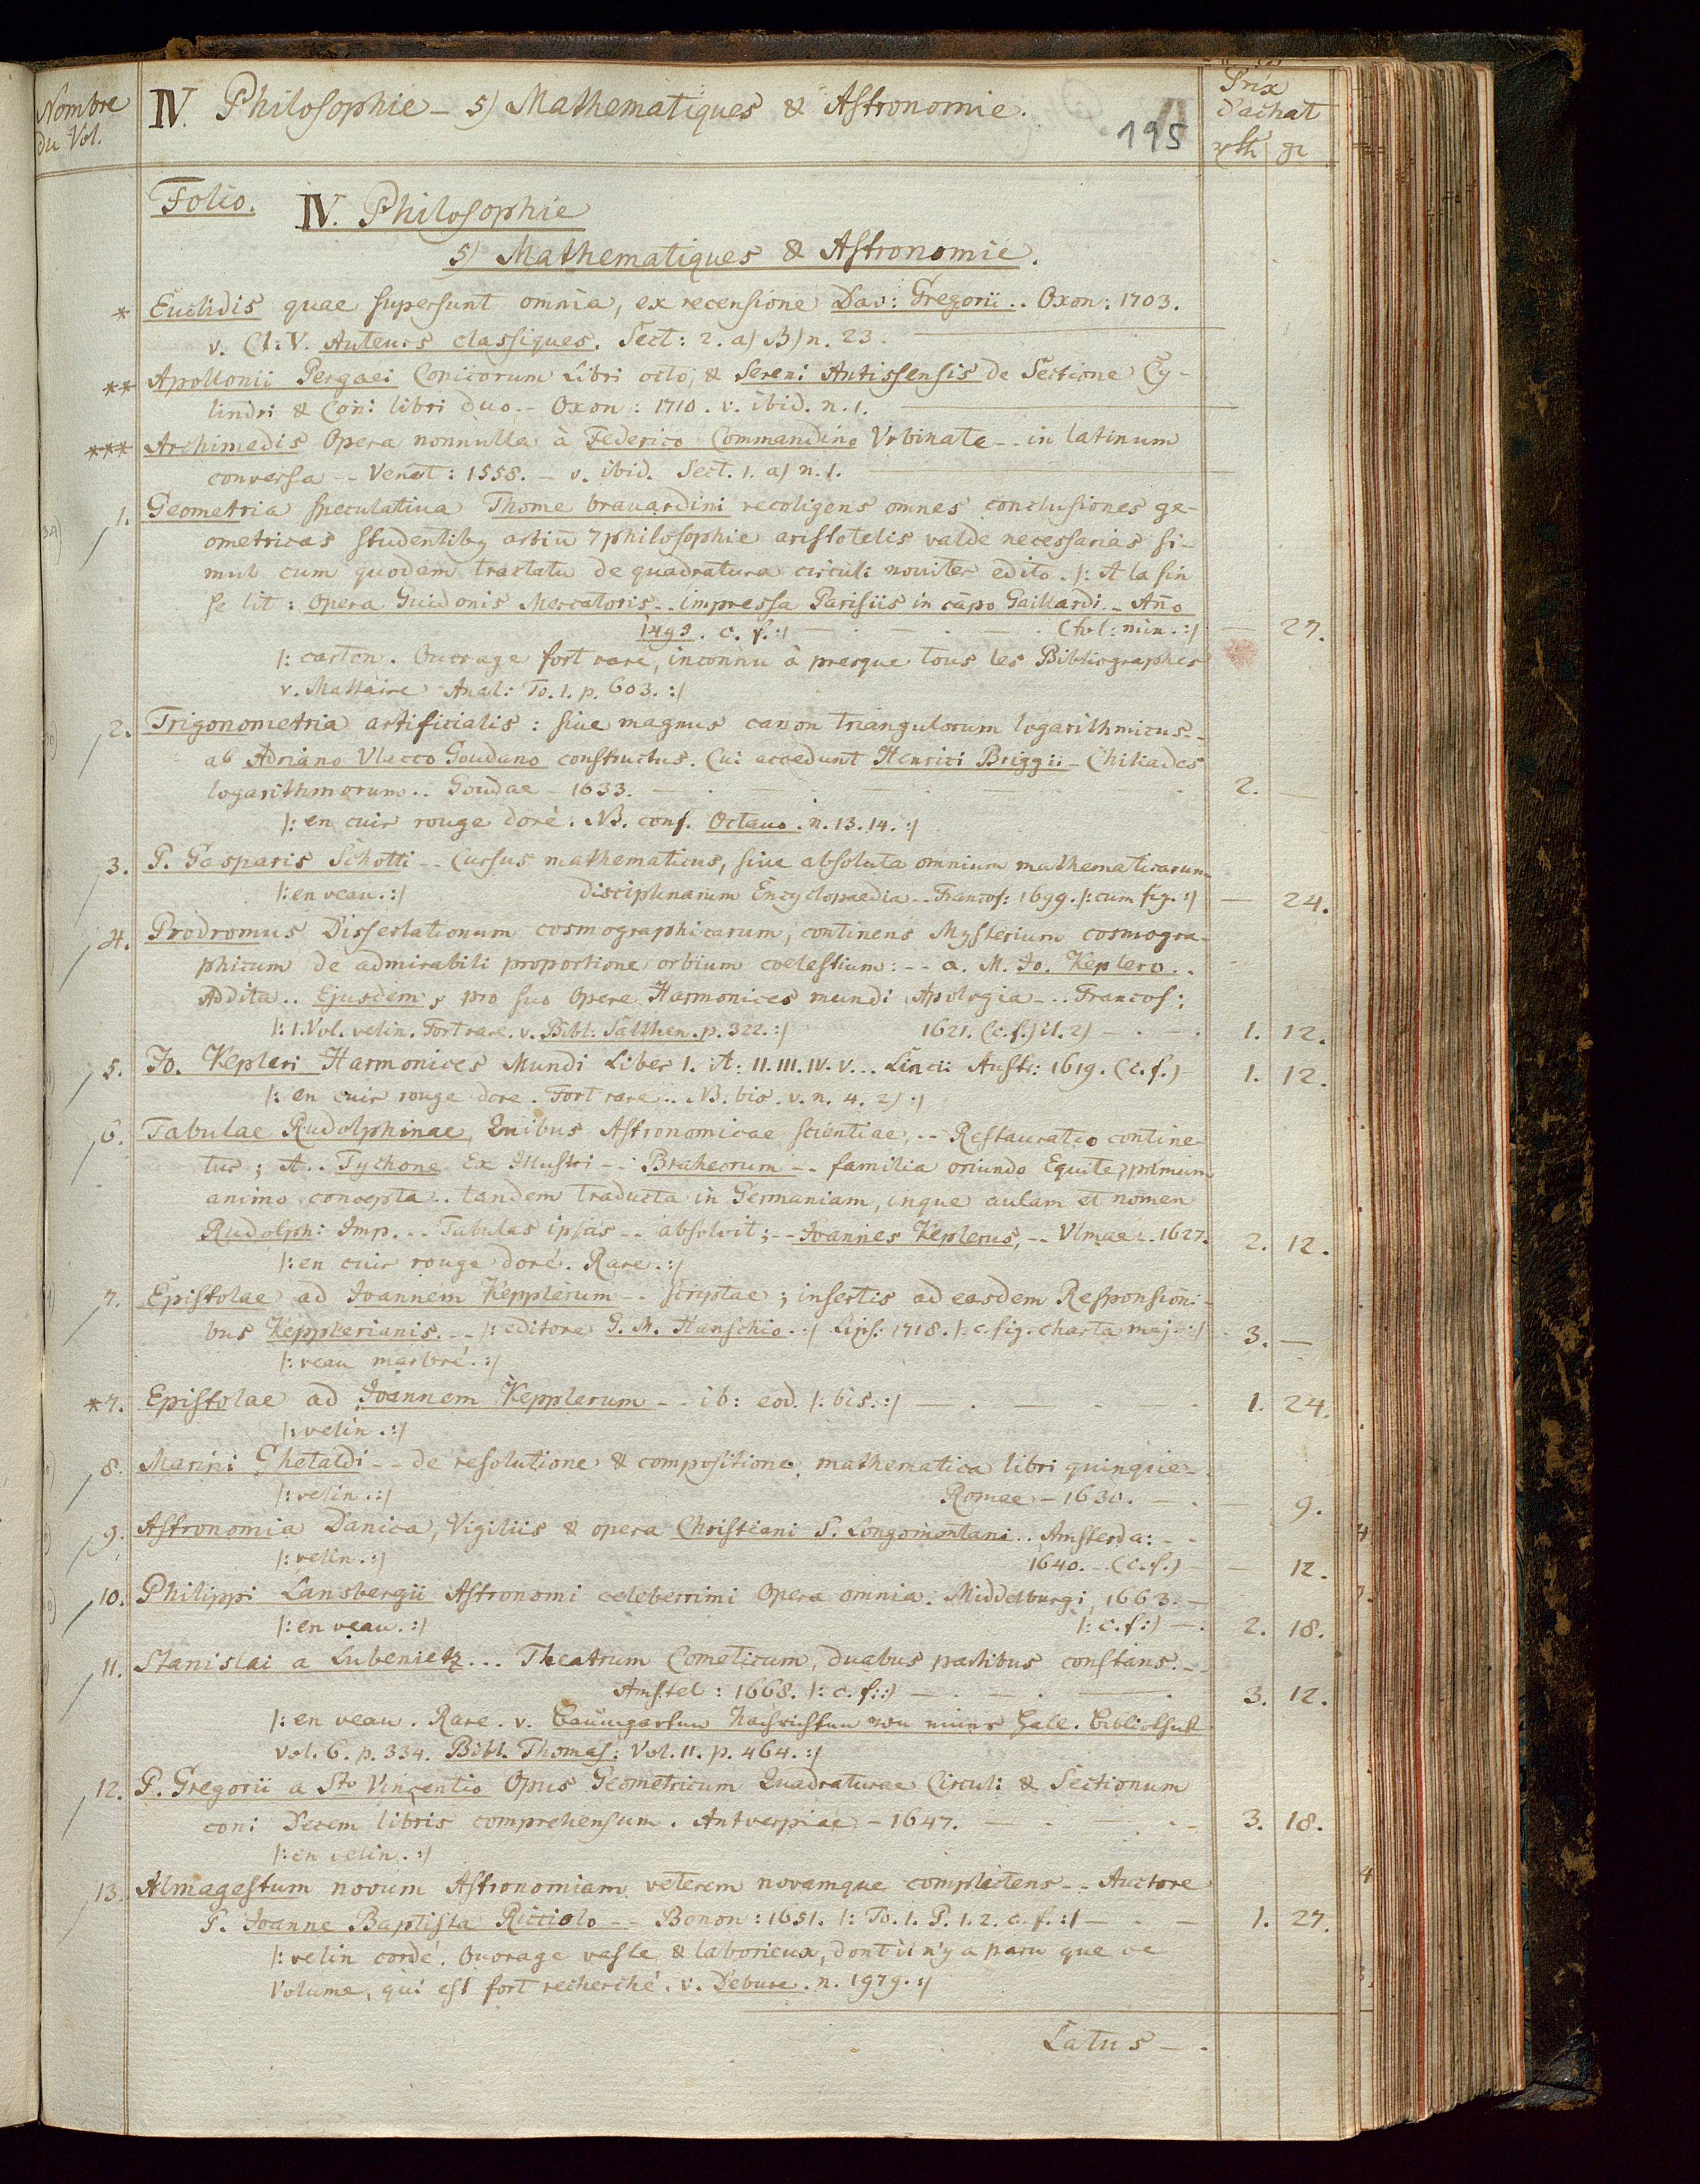 Nombre
du Vol.
IV. Philosophie – 5) Mathematiques & Astronomie.
195
Prix
d'achat
rth gr
Folio. IV. Philosophie
5) Mathematiques & Astronomie.
* Euclidis quae supersunt omnia, ex recensione Dav: Gregorii .. Oxon: 1703.
v. Cl: V. Auteurs classiques. Sect: 2. a) B) n. 23.
** Apollonii Pergaei Conicorum Libri octo, & Sereni Antissensis de Sectione Cy-
lindri & Coni libri duo. – Oxon: 1710. v. ibid. n. 1.
*** Archimedis Opera nonnulla à Federico Commandino Vrbinate -- in latinum
conversa -- Venet: 1558. – v. ibid. Sect. 1. a) n. 1.
1. Geometria speculatiua Thome brauardini recoligens omnes conclusiones ge-
ometricas studentibȝ artiū 7 philosophie aristotelis valde necessarias si-
mul cum quodem tractatu de quadratura circuli nouiter edito. /: A la fin
se lit: Opera Guidonis Mercatoris .. impressa Parisiis in cāpo Gaillardi -- Año
1495. c. f. :/ — . — . — . (fol: min. :/ — 27.
/: carton. Ouvrage fort rare, inconnu à presque tous les Bibliographes
v. Mattaire Anal: To. 1. p. 603. :/
2. Trigonometria artificialis: siue magnus canon triangulorum logarithmicus --
ab Adriano Vlacco Goudano constructus. Cui accedunt Henrici Briggii – Chiliades
logarithmorum .. Goudae – 1633. — . — . — . 2. —
/: en cuir rouge doré. NB. conf. Octavo. n. 13. 14. :/
3. P. Gasparis Schotti -- Cursus mathematicus, siue absoluta omnium mathematicarum
/: en veau. :/ disciplinarum Encyclopaedia -- Francof: 1699. /: cum fig. :/ — 24.
4. Prodromus Dissertationum cosmographicarum, continens Mysterium cosmogra-
phicum de admirabili proportione orbium coelestium: -- a. M. Jo. Keplero ..
Addita .. Ejusdem, pro suo Opere Harmonices mundi Apologia -- . Francof:
/: 1. Vol. velin. Fort rare. v. Bibl. Salthen. p. 322. :/ 1621. (c. f.) it. 2) — . — . 1. 12.
5. Jo. Kepleri Harmonices Mundi Liber 1. A: II. III. IV. V ... Lincii Austr: 1619. (c. f.) — 1. 12.
/: en cuir rouge dore. Fort rare .. NB. bis. v. n. 4. 2) :/
6. Tabulae Rudolphinae, Quibus Astronomicae scientiae, -- Restauratio contine-
tur; A .. Tychone Ex Illustri -- Braheorum -- familia oriundo Equite, primum
animo concepta .. tandem traducta in Germaniam, inque aulam et nomen
Rudolphi Imp. .. Tabulas ipsas -- absolvit; -- Joannes Keplerus, -- Vlmae .. 1627. 2. 12.
/: en cuir rouge doré. Rare. :/
7. Epistolae ad Joannem Kepplerum -- scriptae; insertis ad easdem Responsioni-
bus Kepplerianis. -- /: editore G. M. Hanschio. :/ Lips: 1718. /: c. fig. charta maj. :/ 3. —
/: veau marbré. :/
*7. Epistolae ad Joannem Kepplerum -- ib: eod. /: bis. :/ — . — . — . 1. 24.
/: velin. :/
8. Marini Ghetaldi -- de resolutione & compositione mathematica libri quinque --
/: velin. :/ Romae – 1630. — . — 9.
9. Astronomia Danica, Vigiliis & opera Christiani S. Longomontani .. Amsterda: --
/: velin. :/ 1640. -- (c. f.) — — 12.
10. Philippi Lansbergii Astronomi celeberrimi Opera omnia. Middelburgi, 1663. —
/: en veau. :/ /: c. f :/ — . 2. 18.
11. Stanislai a Lubenietz ... Theatrum Cometicum, duabus partibus constans. --
Amstel: 1668. /: c. f: :/ — . — . — . 3. 12.
/: en veau. Rare. v. Baumgarten Nachrichten von einer Hall. Bibliothek
Vol. 6. p. 334. Bibl. Thomas: Vol. 11. p. 464. :/
12. P. Gregorii a Sto Vincentio Opus Geometricum Quadraturae Circuli & Sectionum
coni Decem libris comprehensum. Antverpiae – 1647. — . — . 3. 18.
/: en velin. :/
13. Almagestum novum Astronomiam veterem novamque complectens -- Auctore
P. Joanne Baptista Ricciolo -- Bonon: 1651. /: To. 1. P. 1. 2. c. f. :/ — . — 1. 27.
/: velin cordé. Ouvrage vaste & laborieux, dont il n'y a paru que ce
Volume, qui est fort recherché. v. Debure. n. 1979. :/
Latus — .